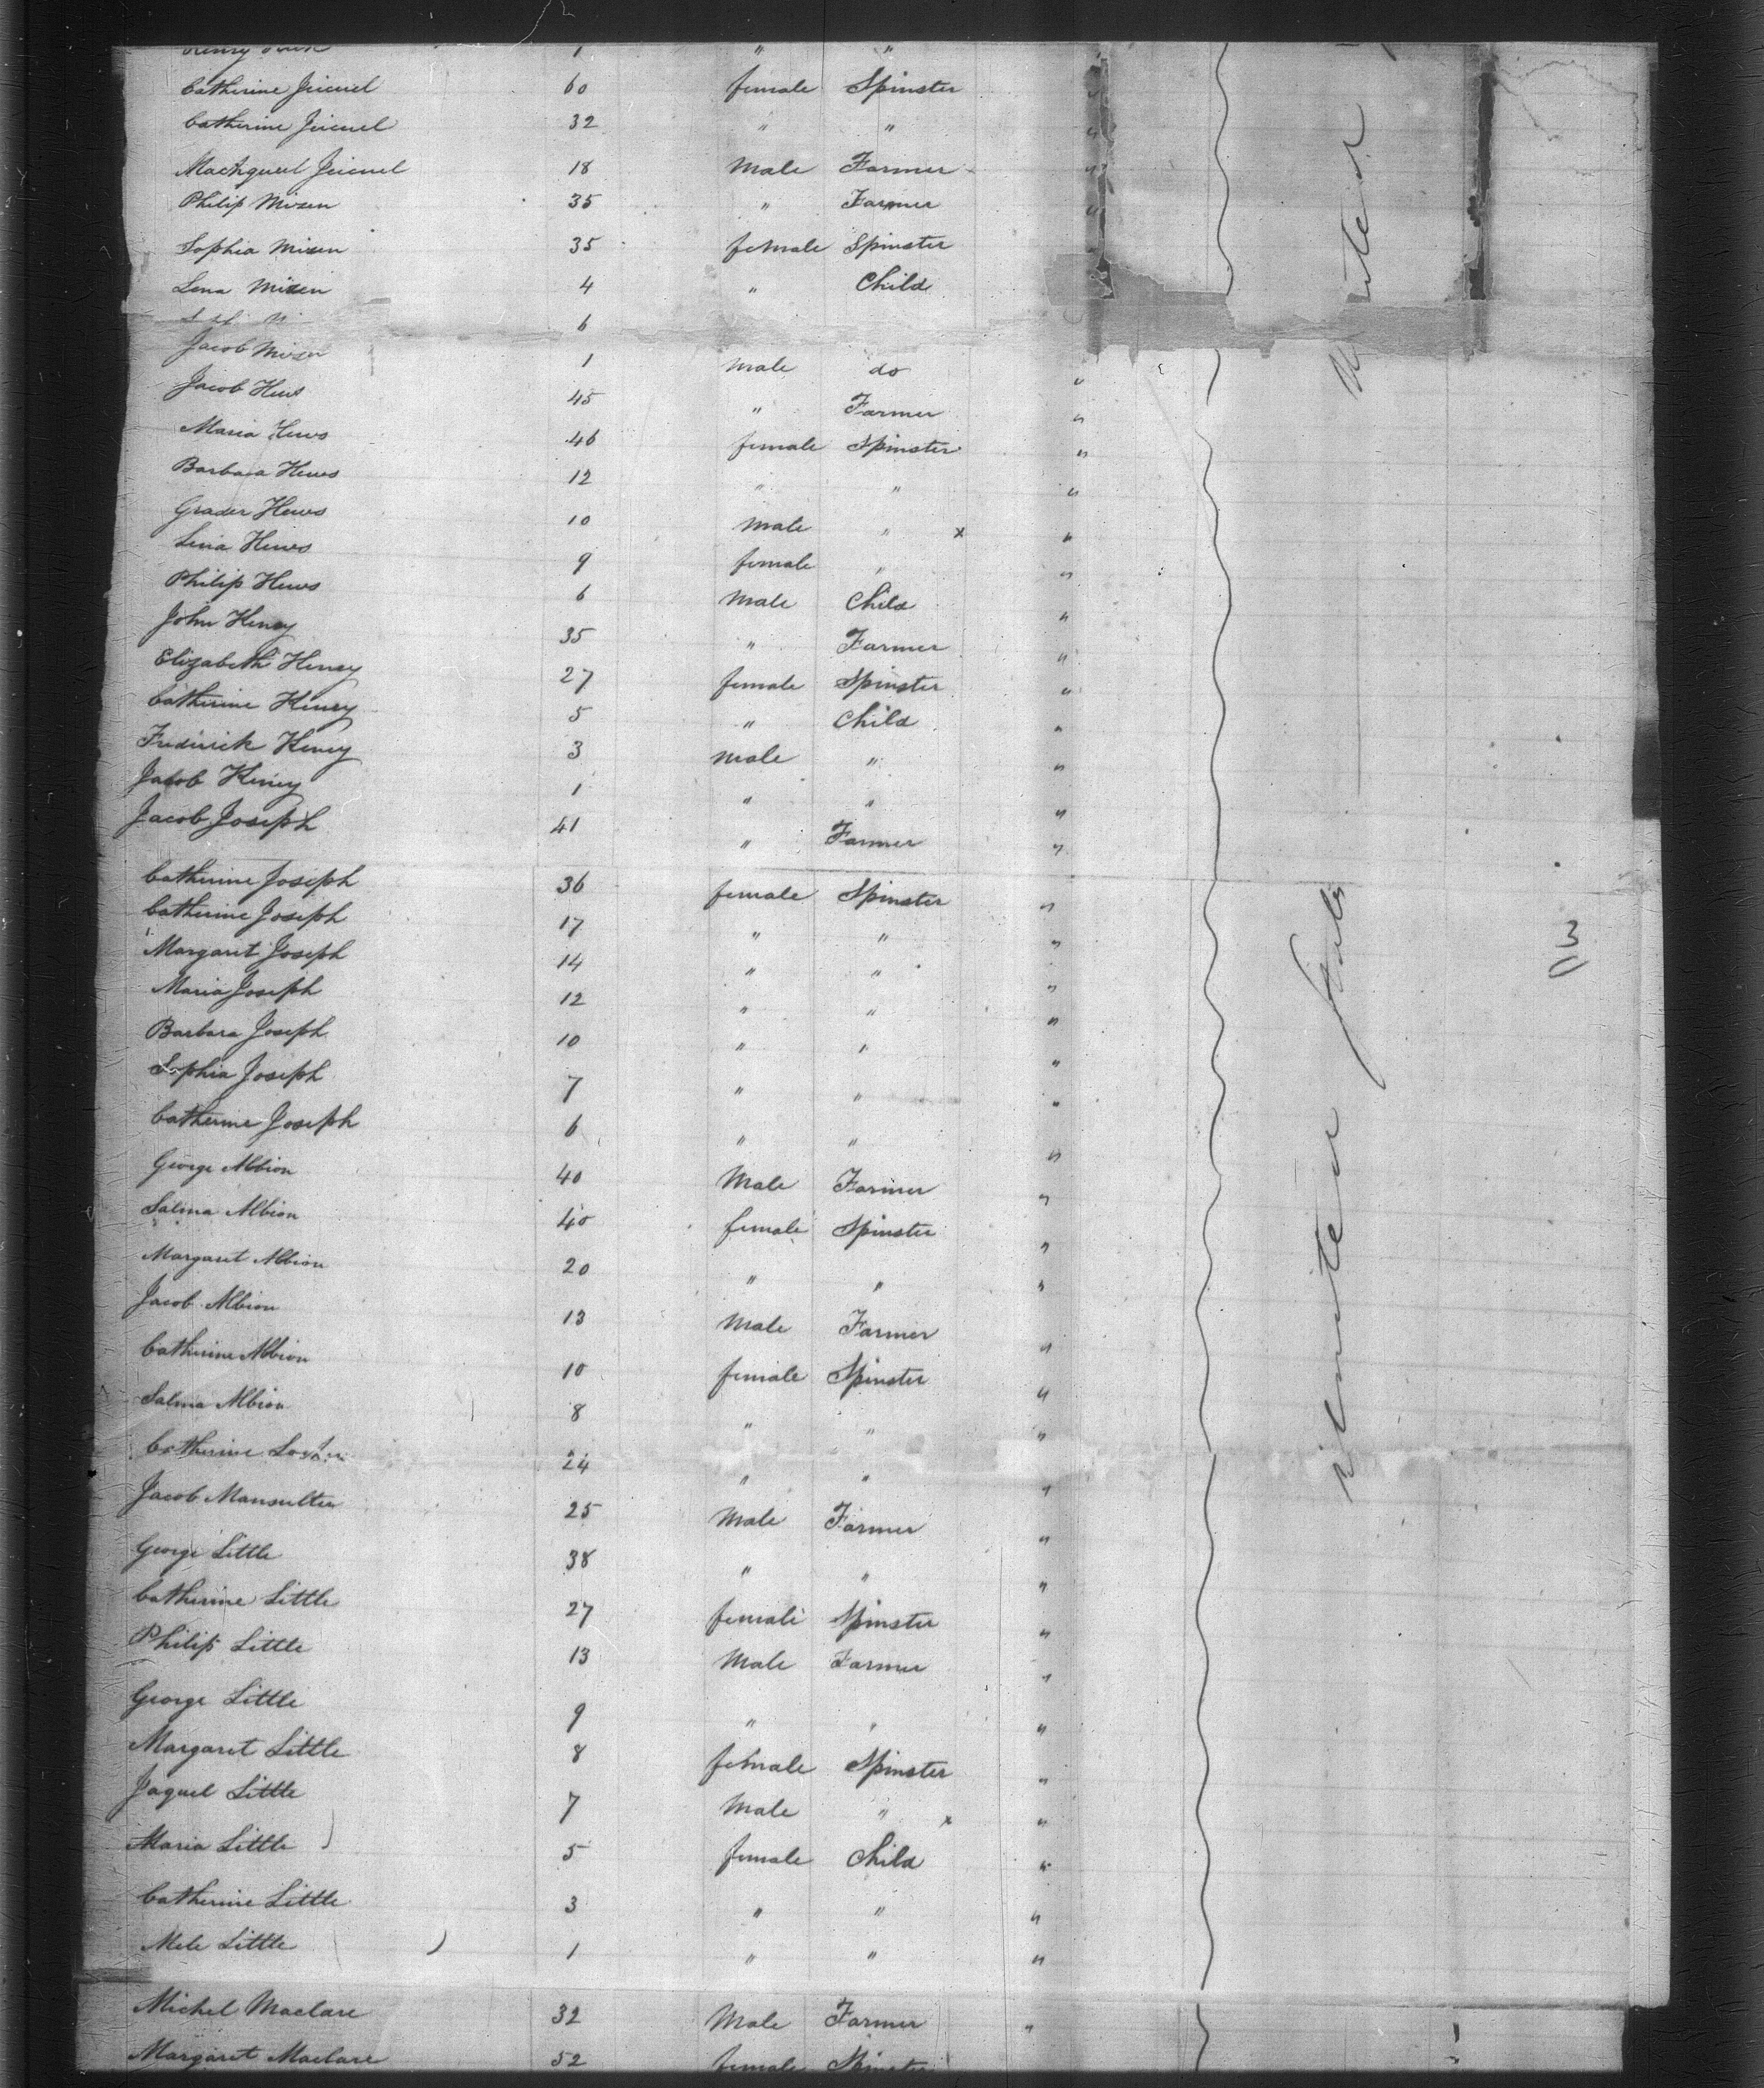 Henry 1 " "
Catherine Juicuel 60 female Spinster "
Catherine Juicuel 32 " " "
Juicuel 18 Male Farmer "
Philip Misen 35 " Farmer "
Sophia Misen 35 female Spinster
Lena Misen 4 " Child
6
Jacob Misen 1 Male do "
Jacob Hews 45 " Farmer "
Maria Hews 46 female Spinster "
Barbara Hews 12 " " "
Grader Hews 10 Male " x "
Lena Hews 9 female " "
Philip Hews 6 Male Child "
John Heney 35 " Farmer "
Elizabeth Heney 27 female Spinster "
Catherine Heney 5 " Child "
Frederick Heney 3 male " "
Jacob Heney 1 " " "
Jacob Joseph 41 " Farmer "
Catherine Joseph 36 female Spinster "
Catherine Joseph 17 " " "
Margaret Joseph 14 " " "
Maria Joseph 12 " " "
Barbara Joseph 10 " " "
Sophia Joseph 7 " " "
Catherine Joseph 6 " " "
George Albion 40 Male Farmer "
Salma Albion 40 female Spinster "
Margaret Albion 20 " " "
Jacob Albion 13 Male Farmer "
Catherine Albion 10 female Spinster "
Salma Albion 8 " " "
Catherine 24 " " "
Jacob Mansulter 25 Male Farmer "
George Little 38 " " "
Catherine Little 27 female Spinster "
Philip Little 13 Male Farmer "
George Little 9 " " "
Margaret Little 8 female Spinster "
Jaquel Little 7 Male " x "
Maria Little 5 female Child "
Catherine Little 3 " " "
Mele Little 1 " " "
Michel Maclare 32 Male Farmer "
Margaret Maclare 52 female Spinster
United States
United
3